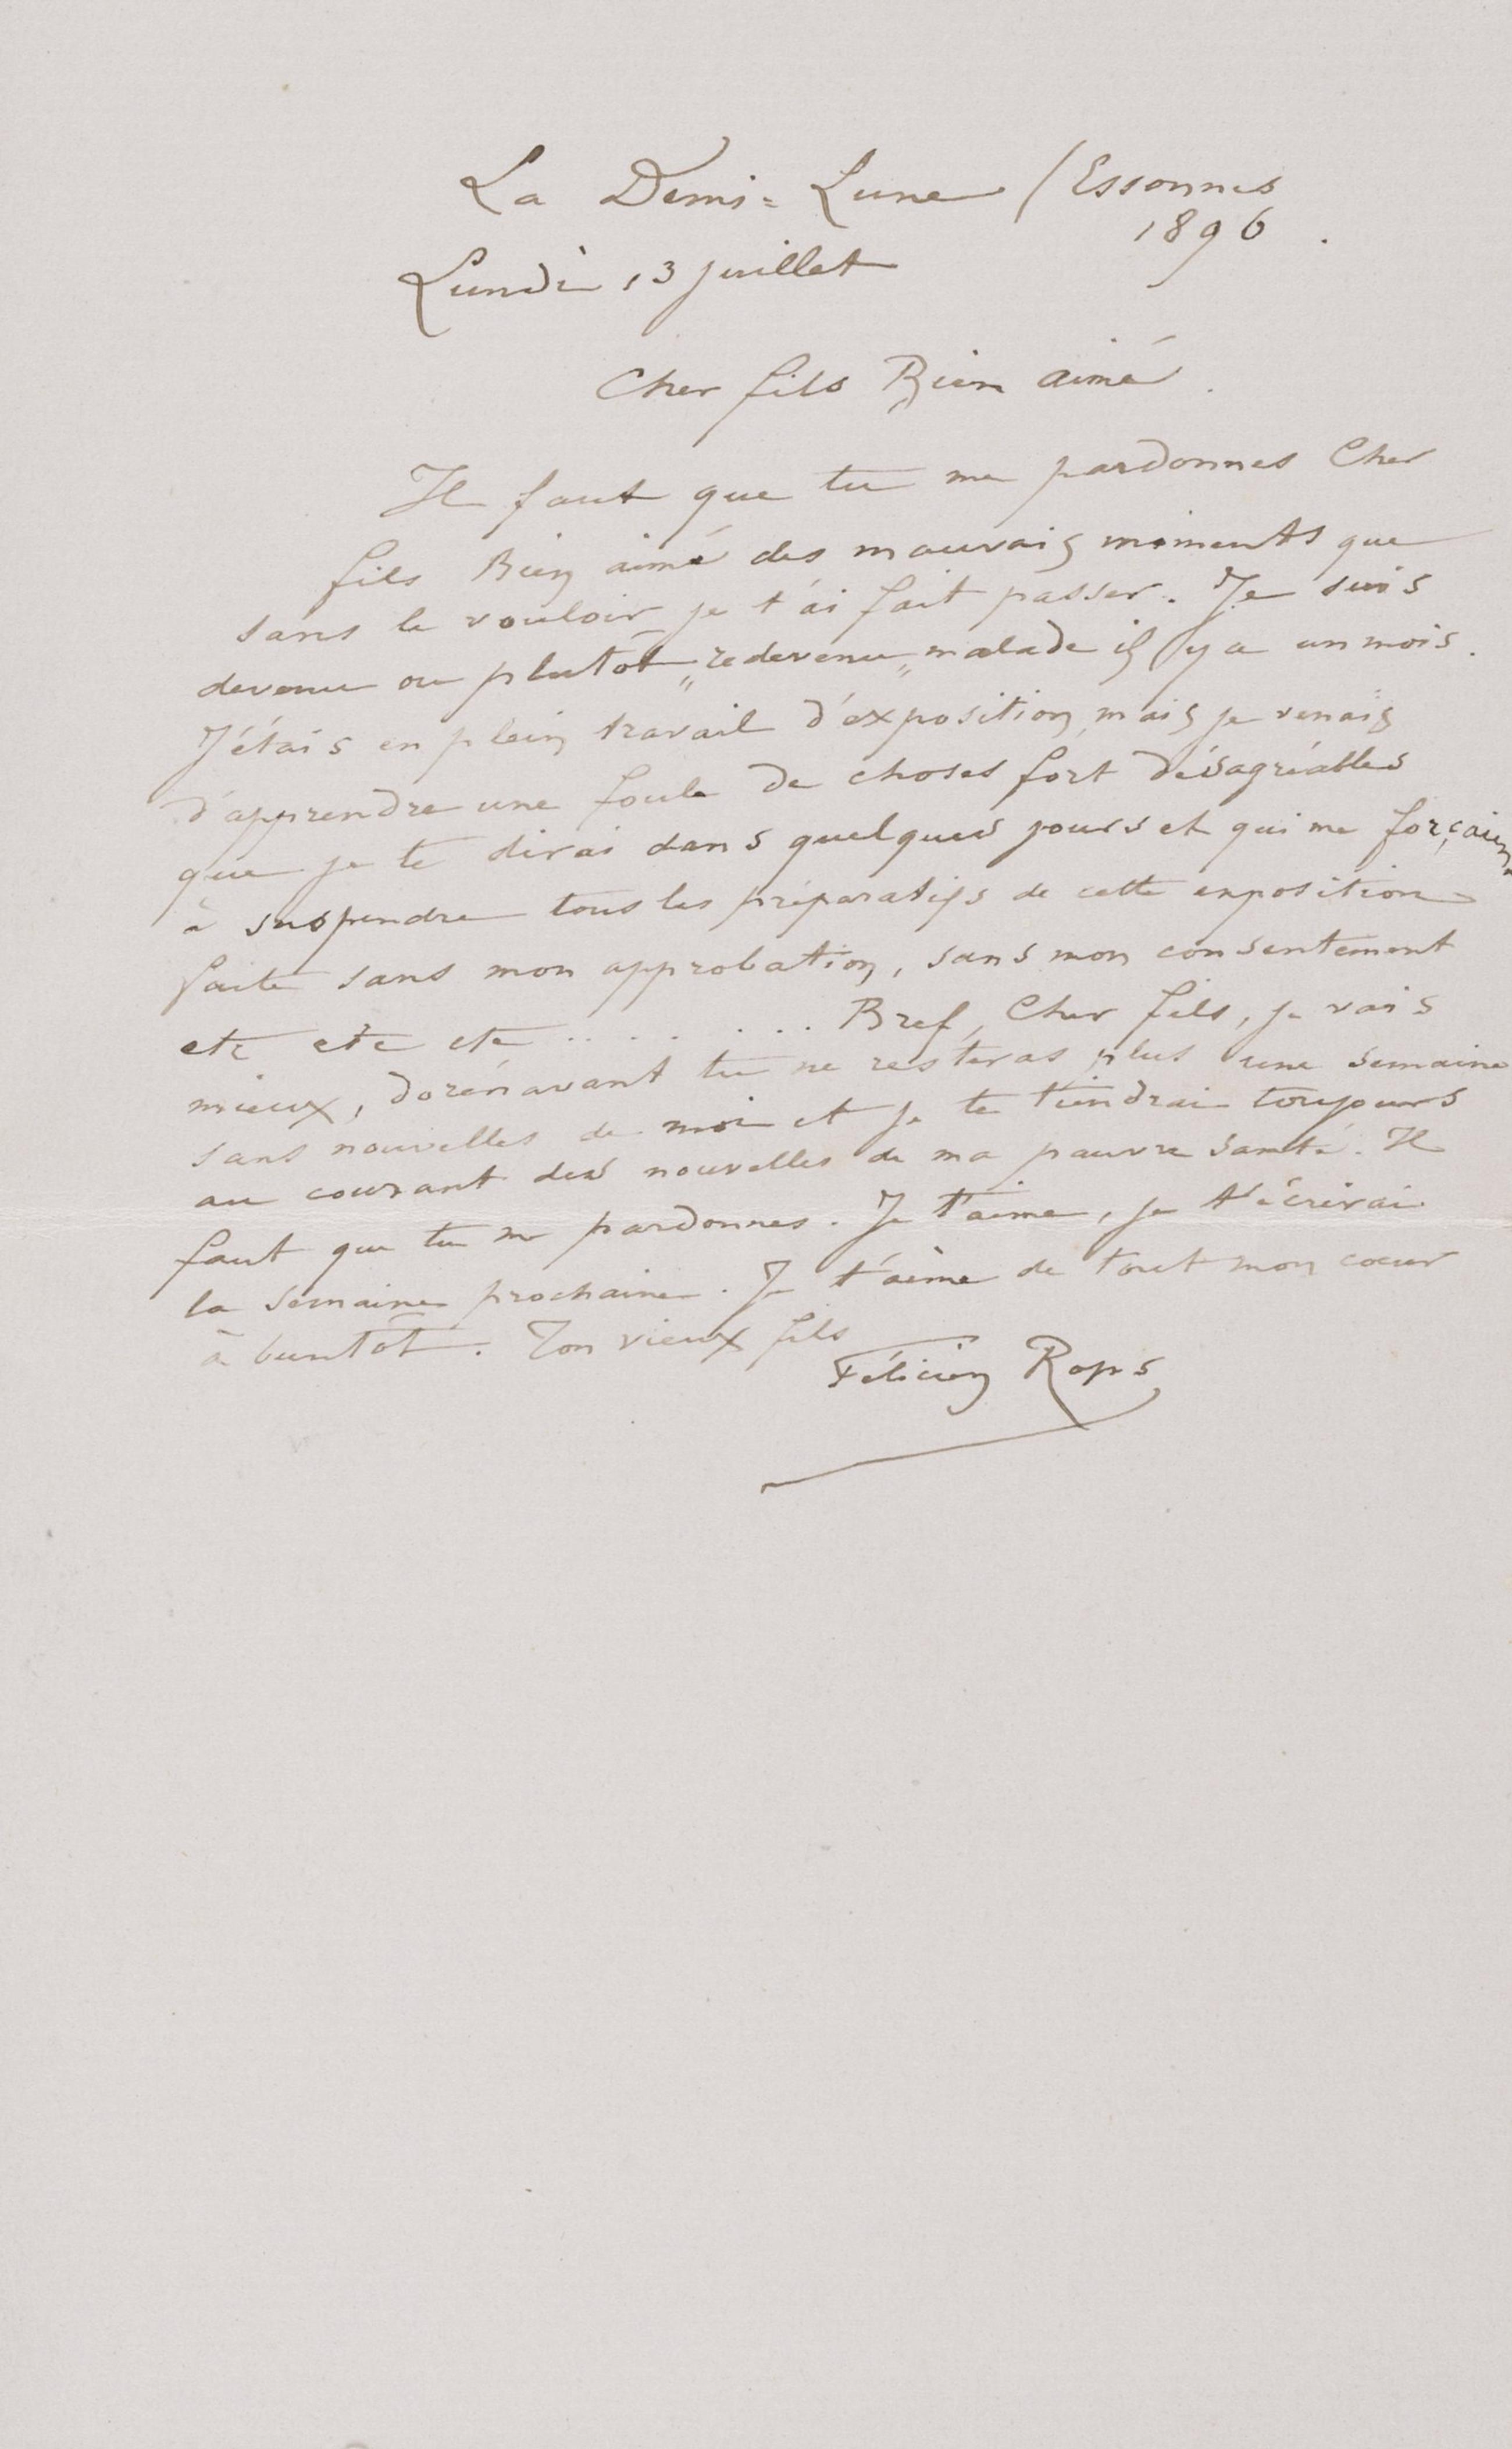 La Demi=Lune / Essonnes
1896.
Lundi 13 juillet
Cher fils Bien aimé.
Il faut que tu me pardonnes Cher
fils Bien aimé des mauvais moments que
sans le vouloir je t'ai fait passer. Je suis
devenu ou plutôt „redevenu„ malade il y a un mois.
J'étais en plein travail d'exposition, mais je venais
d'apprendre une foule de choses fort désagréables
que je te dirai dans quelques jours et qui me forçaient
à suspendre tous les préparatifs de cette exposition
faite sans mon approbation, sans mon consentement
etc etc etc ....... Bref, Cher fils, je vais
mieux, dorénavant tu ne resteras plus une semaine
sans nouvelles de moi et je te tiendrai toujours
au courant des nouvelles de ma pauvre santé. Il
faut que tu me pardonnes. Je t'aime, je t'écrirai
la semaine prochaine. Je t'aime de tout mon cœur
à bientôt. Ton vieux fils
Félicien Rops